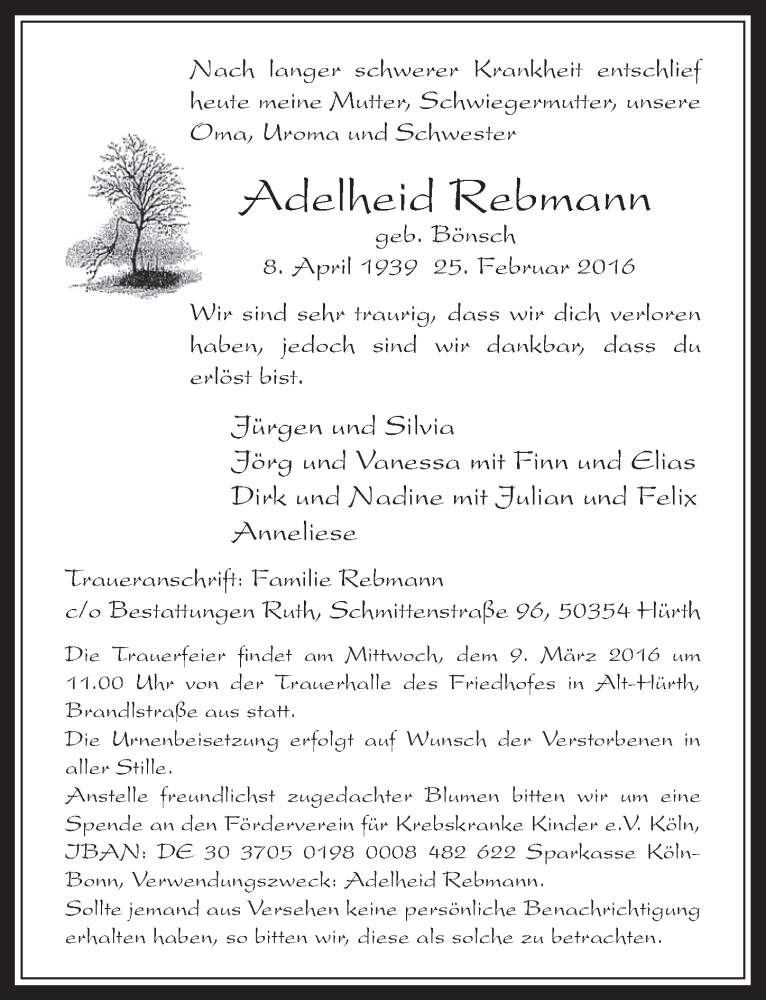 Nach langer schwerer Krankheit entschlief
heute meine Mutter, Schwiegermutter, unsere
Oma, Uroma und Schwester
Adelheid Rebmann
geb. Bönsch
8. April 1939 25. Februar 2016
Wir sind sehr traurig, dass wir dich verloren
haben, jedoch sind wir dankbar, dass du
erlöst bist.
Jürgen und Silvia
Jörg und Vanessa mit Finn und Elias
Dirk und Nadine mit Julian und Felix
Anneliese
Traueranschrift: Familie Rebmann
c/o Bestattungen Ruth, Schmittenstraße 96, 50354 Hürth
Die Trauerfeier findet am Mittwoch, dem 9. März 2016 um
11.00 Uhr von der Trauerhalle des Friedhofes in Alt-Hürth,
Brandlstraße aus statt.
Die Urnenbeisetzung erfolgt auf Wunsch der Verstorbenen in
aller Stille.
Anstelle freundlichst zugedachter Blumen bitten wir um eine
Spende an den Förderverein für Krebskranke Kinder e.V. Köln,
IBAN: DE 30 3705 0198 0008 482 622 Sparkasse Köln-
Bonn, Verwendungszweck: Adelheid Rebmann.
Sollte jemand aus Versehen keine persönliche Benachrichtigung
erhalten haben, so bitten wir, diese als solche zu betrachten.